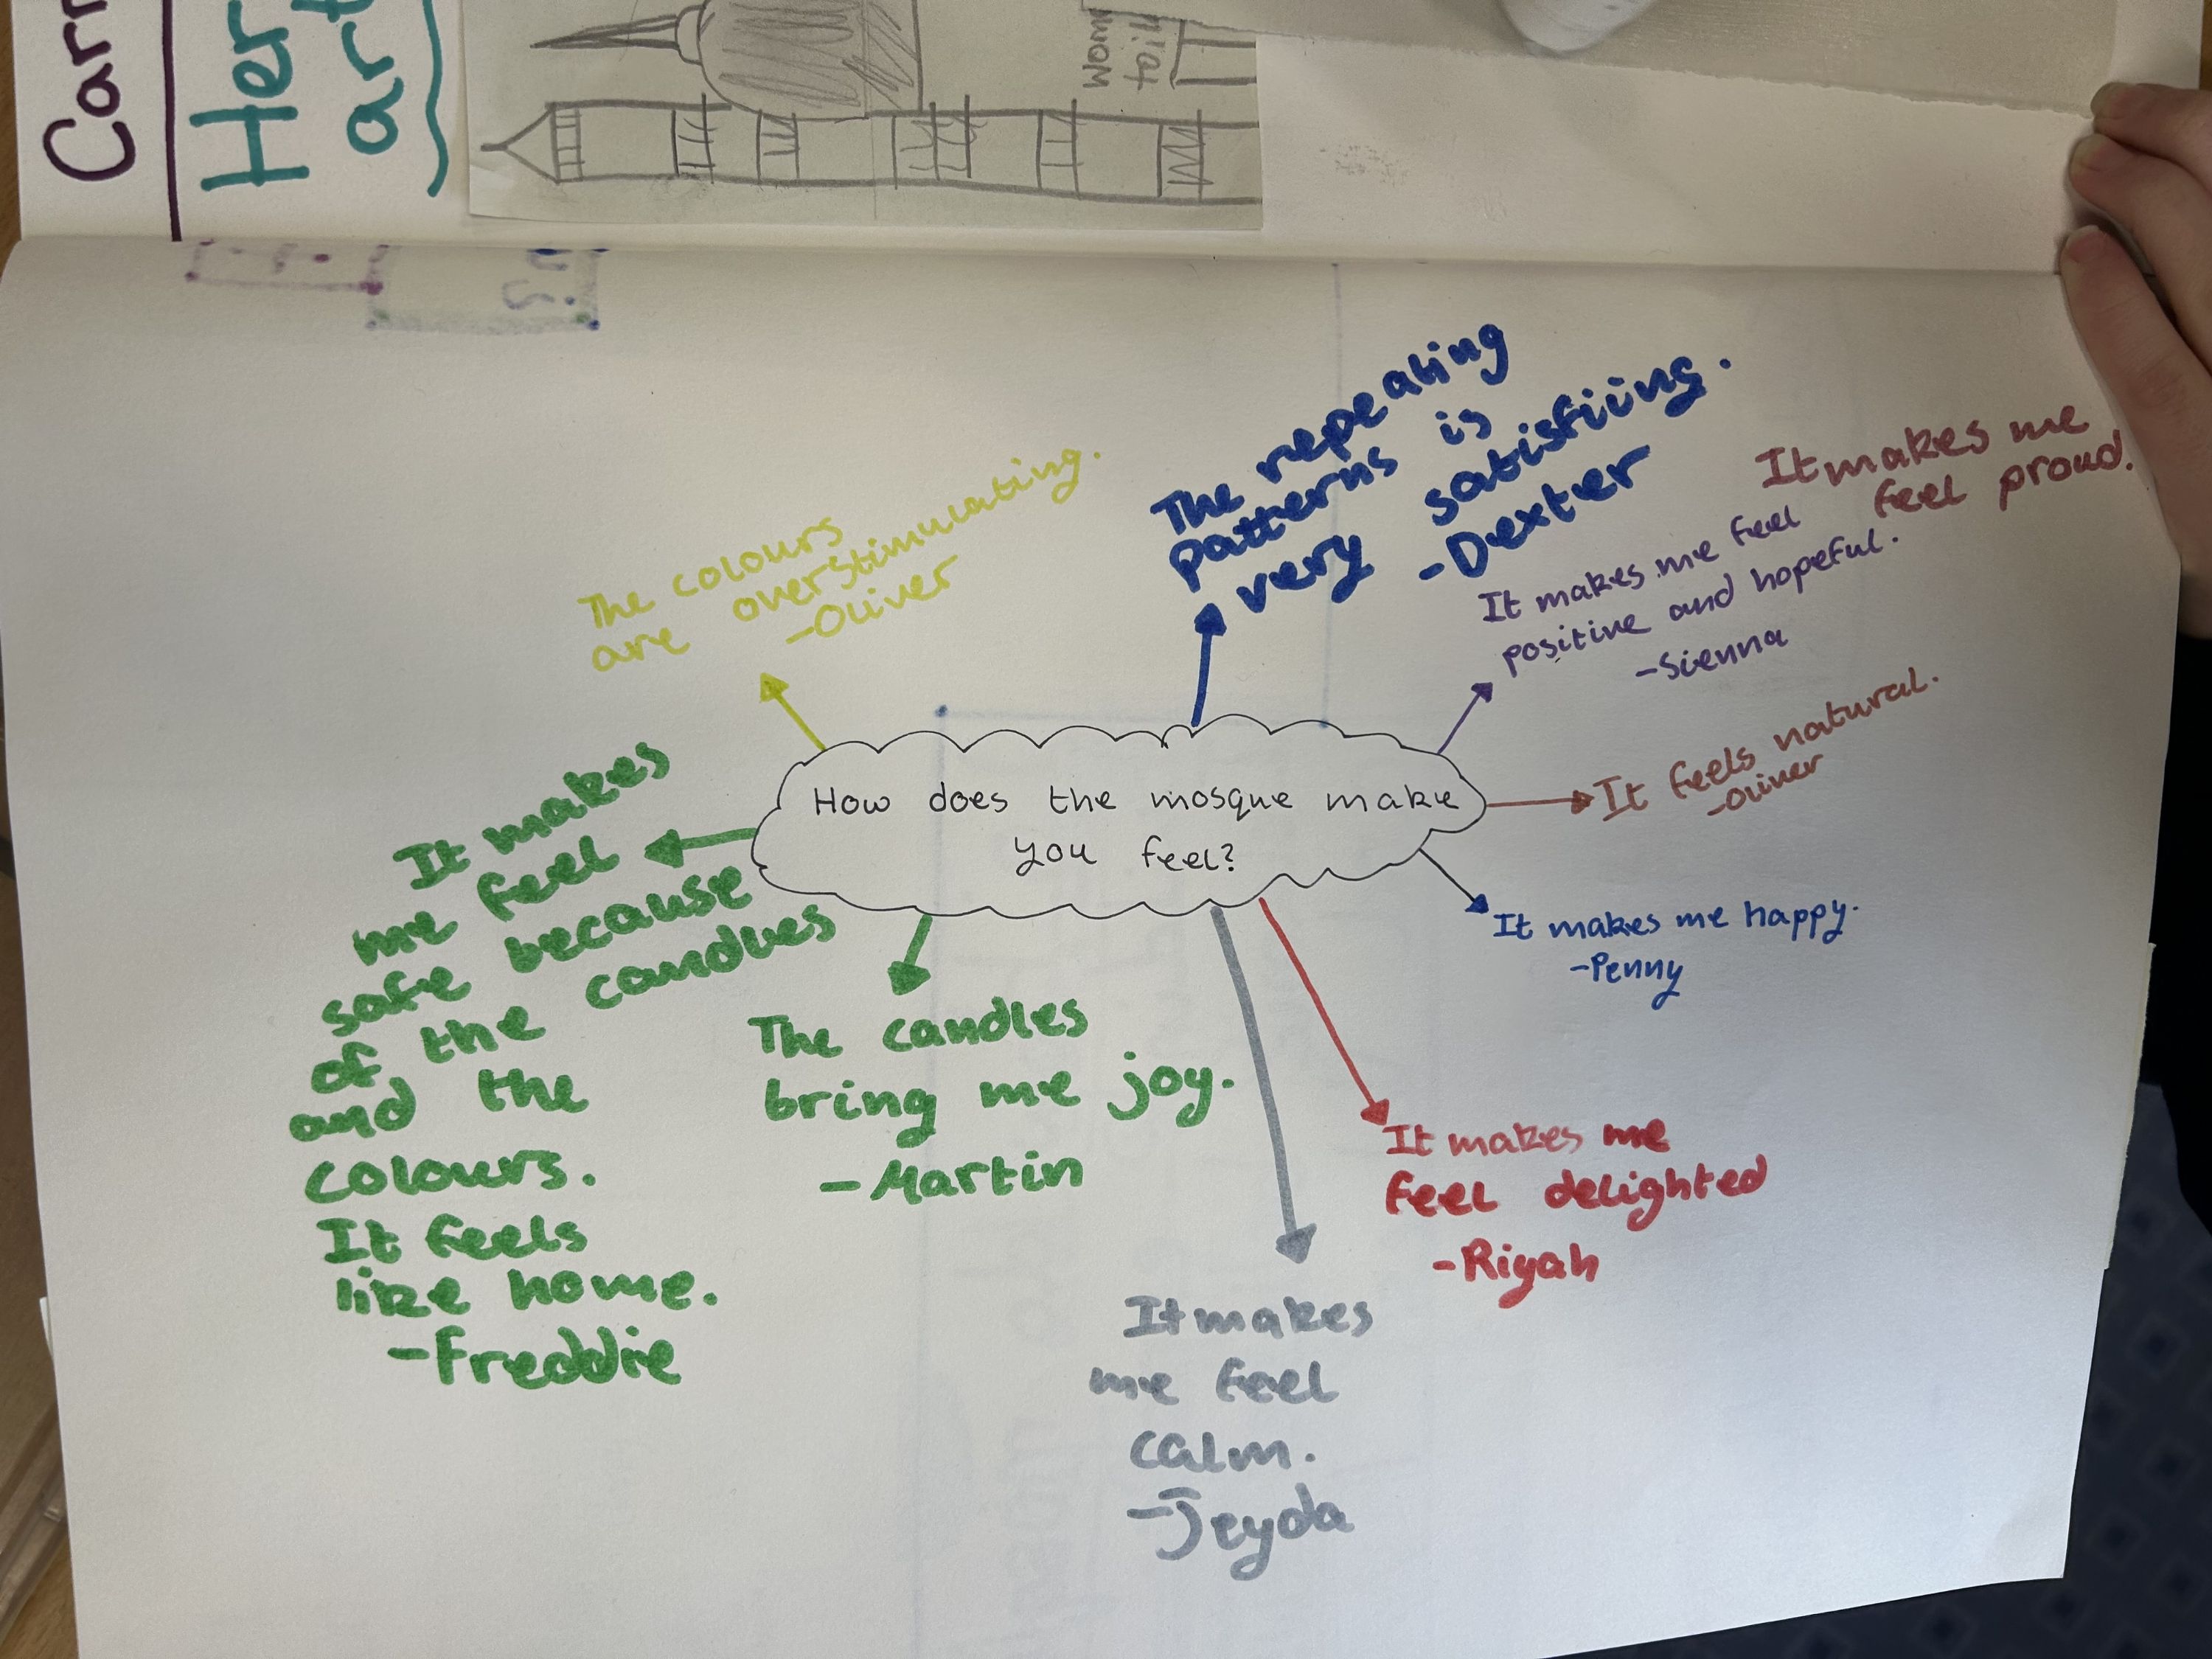 Carr
Her
art
Wom
toil
The colours
are overstimulating.
-Oliver
The repeating
patterns is
very satisfiing.
-Dexter
It makes me
feel proud.
It makes me feel
positive and hopeful.
-Sienna
It feels natural.
-Oliver
How does the mosque make
you feel?
It makes me happy.
-Penny
It makes me
feel delighted
-Riyah
It makes
me feel
calm.
-Jeyda
The candles
bring me joy.
-Martin
It makes
me feel
safe because
of the candues
and the
colours.
It feels
like home.
-Freddie